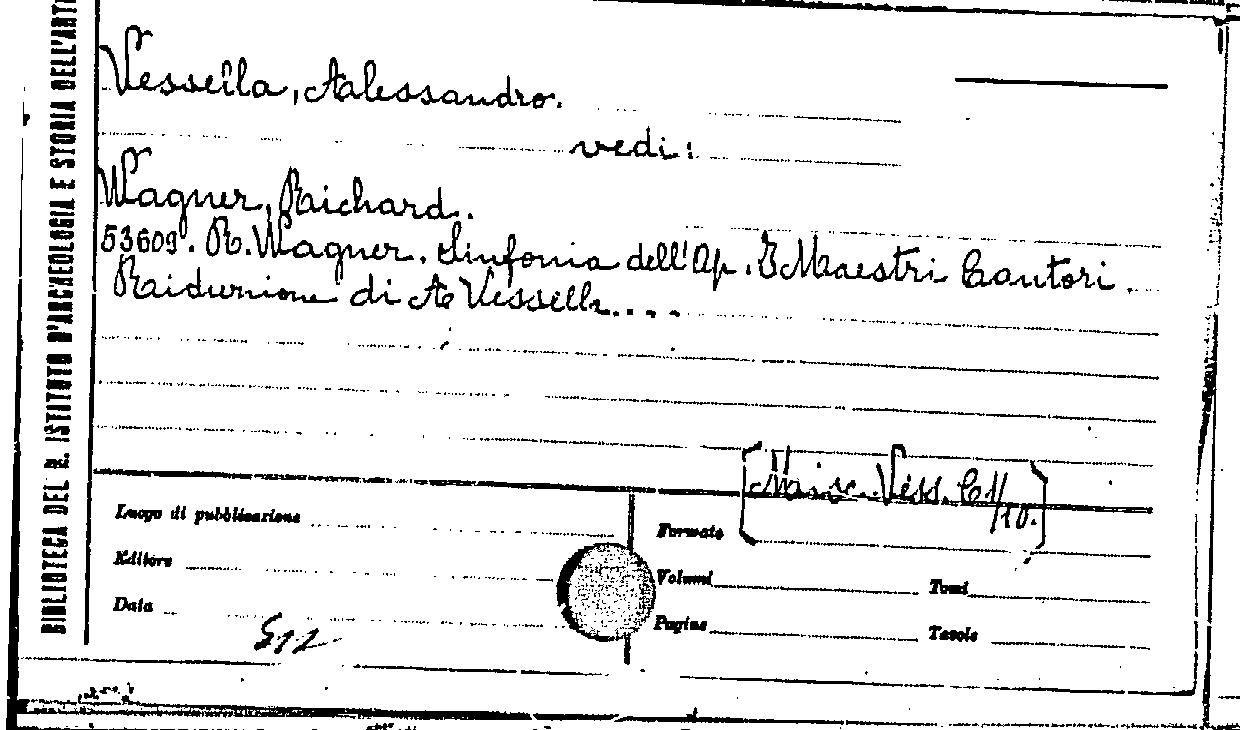 BIBLIOTECA DEL R. ISTITUTO D'ARCHEOLOGIA E STORIA DELL'ARTE
Vessella, Alessandro.
vedi:
Wagner, Richard.
53609. R. Wagner. Sinfonia dell'Op. I Maestri Cantori.
Riduzione di A Vessella....
Misc. Vess. C1/10.
Luogo di pubblicazione
Formato
Editore
Volumi
Tomi
Data
Pagine
Tavole
512